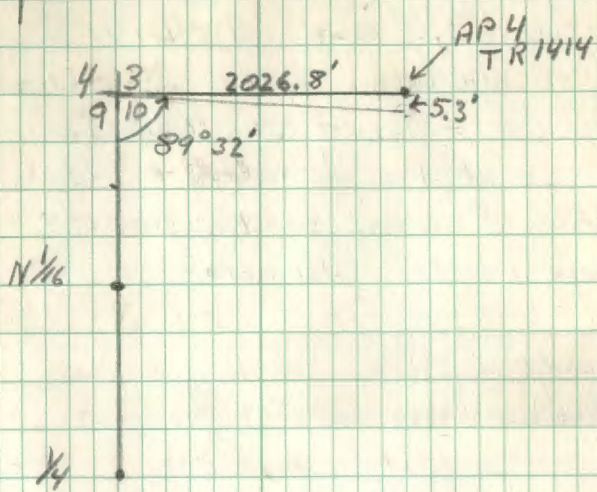 AP 4
TR 1414
4 3
2026.8'
9 10
5.3'
89°32'
N 1/16
1/4